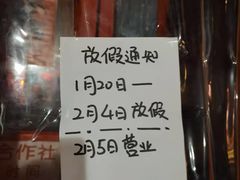 放假通知
1月20日—
2月4日放假
2月5日营业
合作社